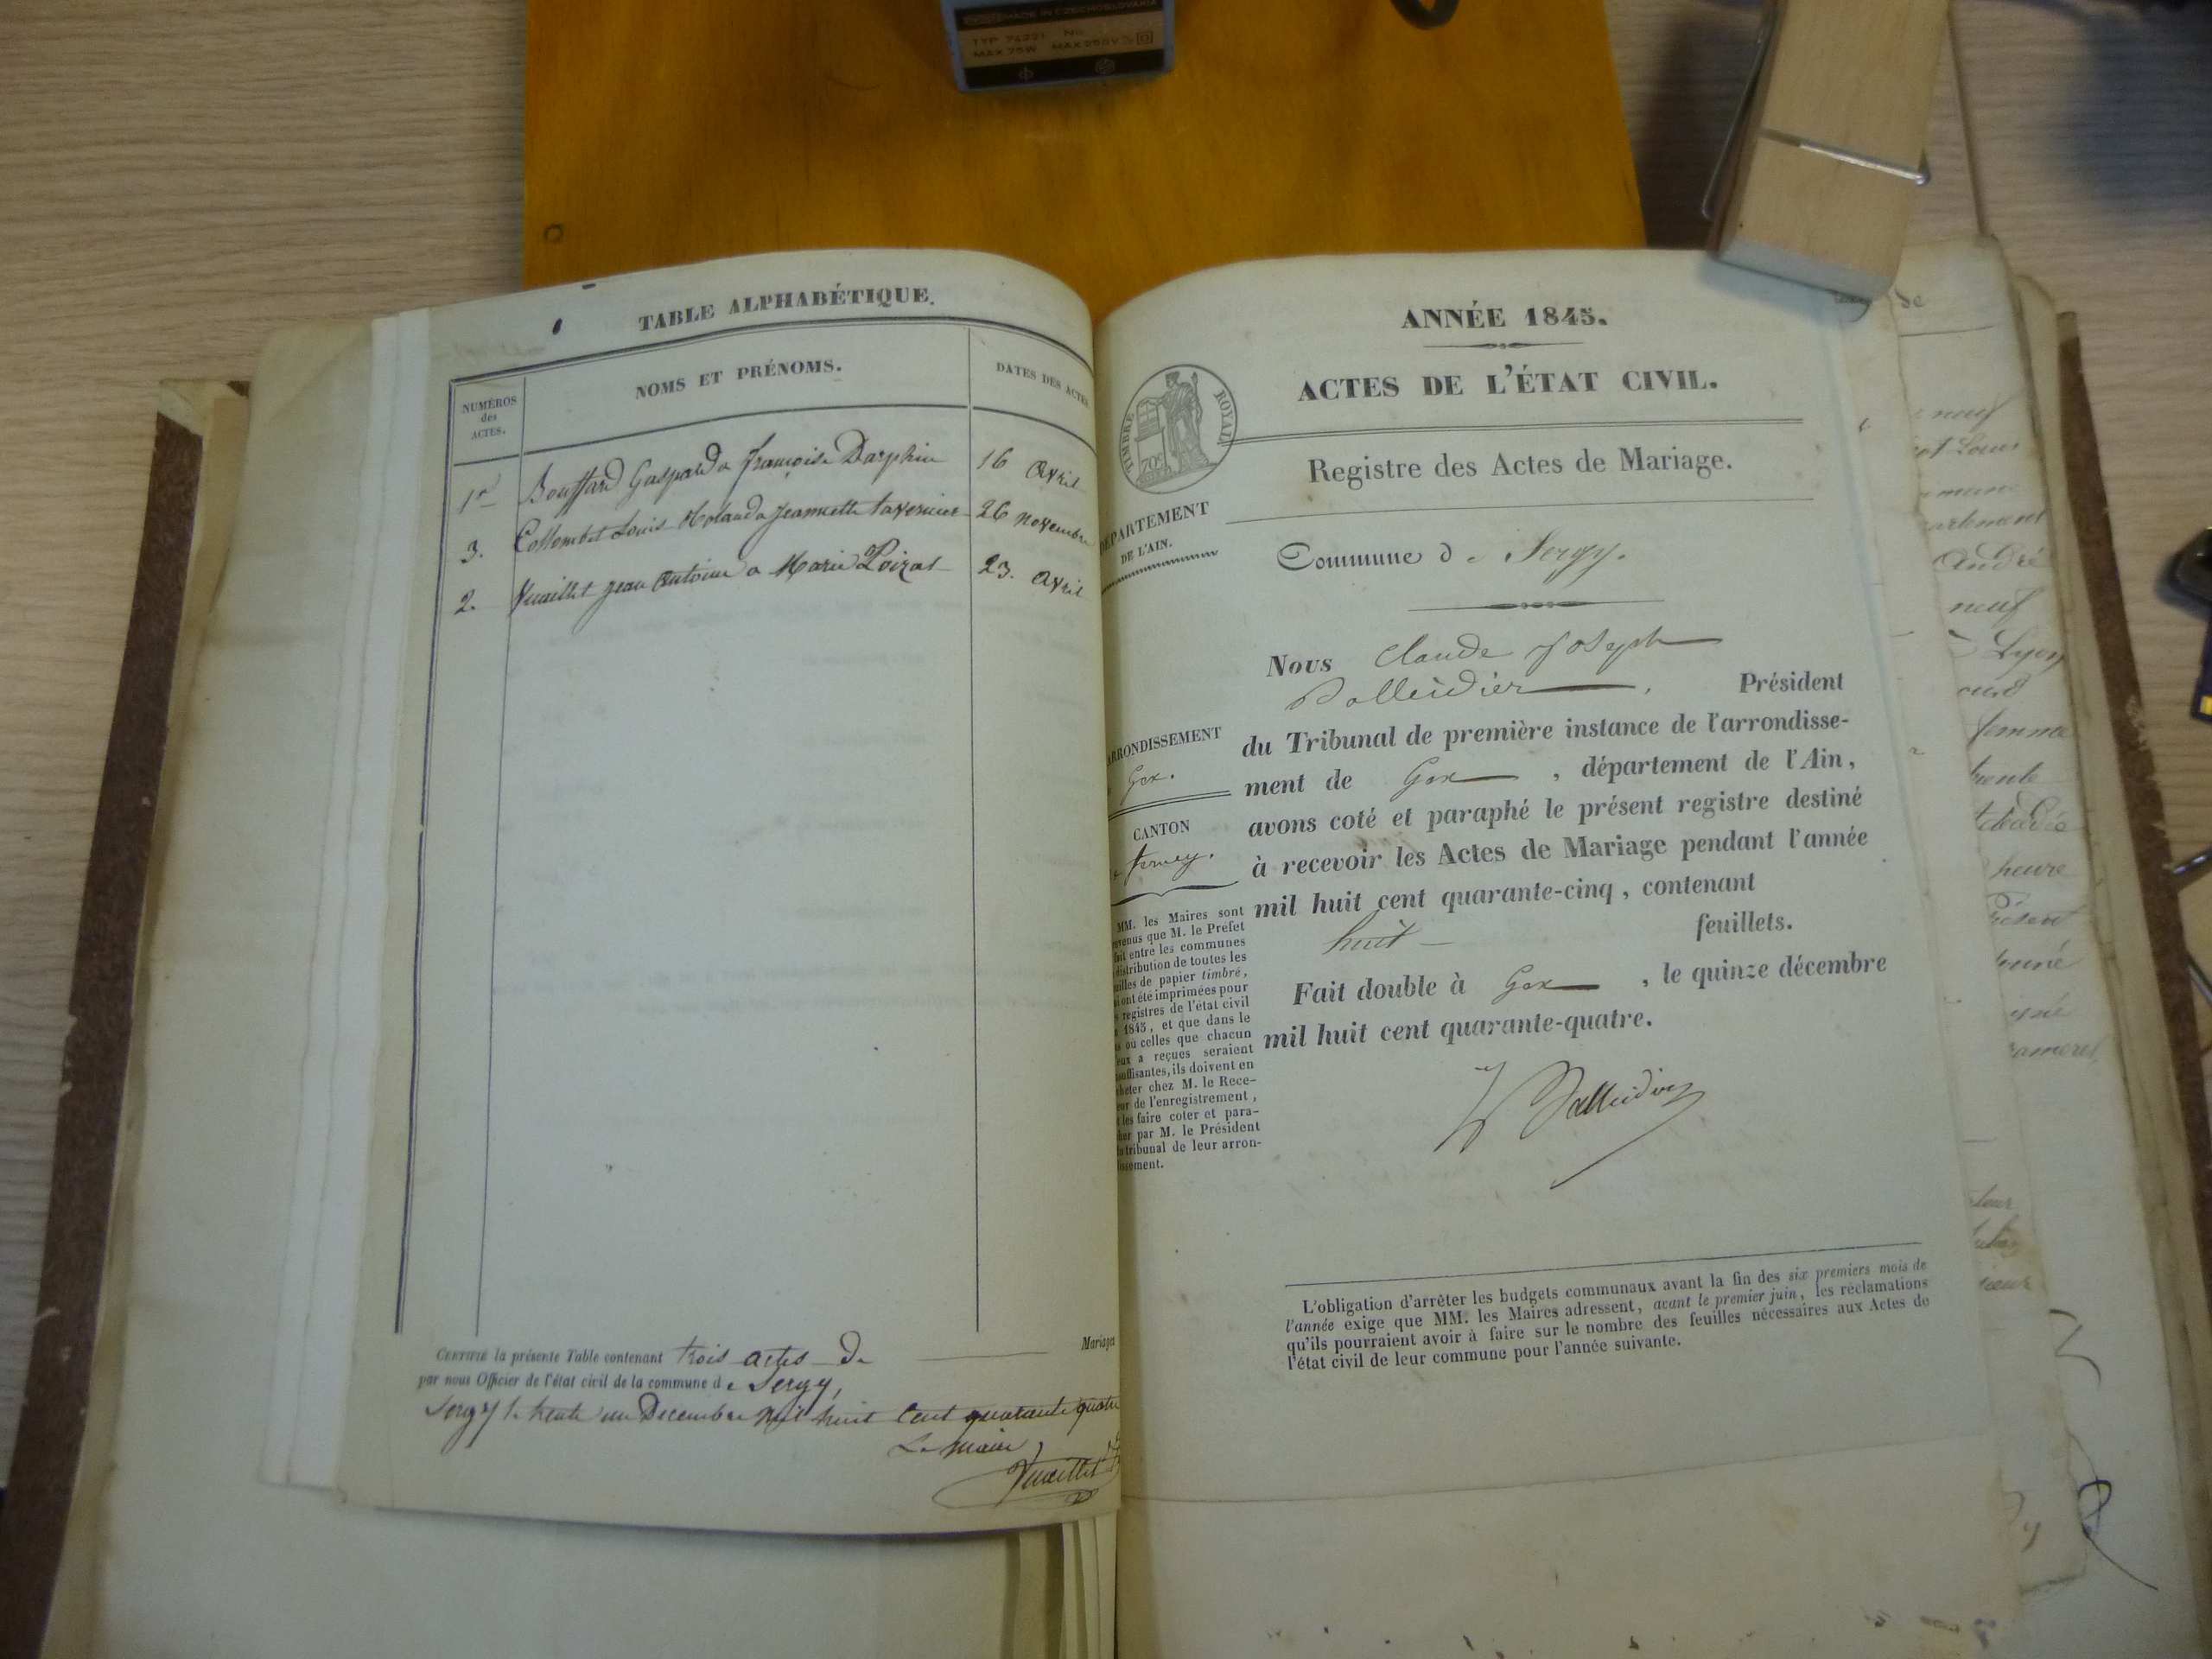 MADE IN CZECHOSLOVAKIA
TYP 74221 No
MAX 75W MAX 250V
TABLE ALPHABÉTIQUE.
NUMÉROS
des
ACTES.
NOMS ET PRÉNOMS.
DATES DES ACTES
1er Bouffard Gaspard a françoise Darphin 16 avril
3. Collombet Louis Roland a jeannette tavernier 26 novembre
2. Vuaillet jean antoine a Marie Poizat 23. avril
CERTIFIÉ la présente Table contenant trois actes de Mariages
par nous Officier de l'état civil de la commune de Sergy,
Sergy le trente un Decembre mil huit Cent quarante quatre
Le maire
Vuaillet
ANNÉE 1845.
ACTES DE L'ÉTAT CIVIL.
TIMBRE ROYAL
70c
Registre des Actes de Mariage.
DÉPARTEMENT
DE L'AIN.
Commune de Sergy.
Nous Claude Joseph
, Président
ARRONDISSEMENT
Gex.
CANTON
ferney.
du Tribunal de première instance de l'arrondisse-
ment de Gex , département de l'Ain,
avons coté et paraphé le présent registre destiné
à recevoir les Actes de Mariage pendant l'année
mil huit cent quarante-cinq, contenant
huit feuillets.
Fait double à Gex , le quinze décembre
mil huit cent quarante-quatre.
MM. les Maires sont
venus que M. le Préfet
fait entre les communes
distribution de toutes les
feuilles de papier timbré,
ont été imprimées pour
registres de l'état civil
1845, et que dans le
où celles que chacun
eux a reçues seraient
insuffisantes, ils doivent en
acheter chez M. le Rece-
veur de l'enregistrement,
les faire coter et para-
pher par M. le Président
tribunal de leur arron-
dissement.
L'obligation d'arrêter les budgets communaux avant la fin des six premiers mois de
l'année exige que MM. les Maires adressent, avant le premier juin, les réclamations
qu'ils pourraient avoir à faire sur le nombre des feuilles nécessaires aux Actes de
l'état civil de leur commune pour l'année suivante.
de
neuf
Louis
André
neuf
Lyon
femme
trente
heure